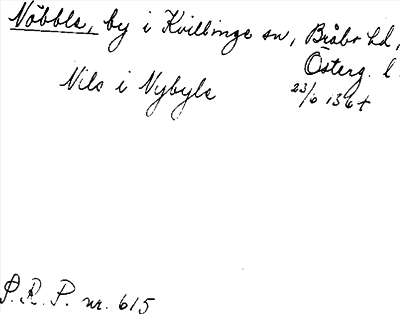 Nöbble, by i Kvillinge sn, Bråbo hd,
Österg. l.
Nils i Nybyle
23/6 1364
S.R.P. nr. 615